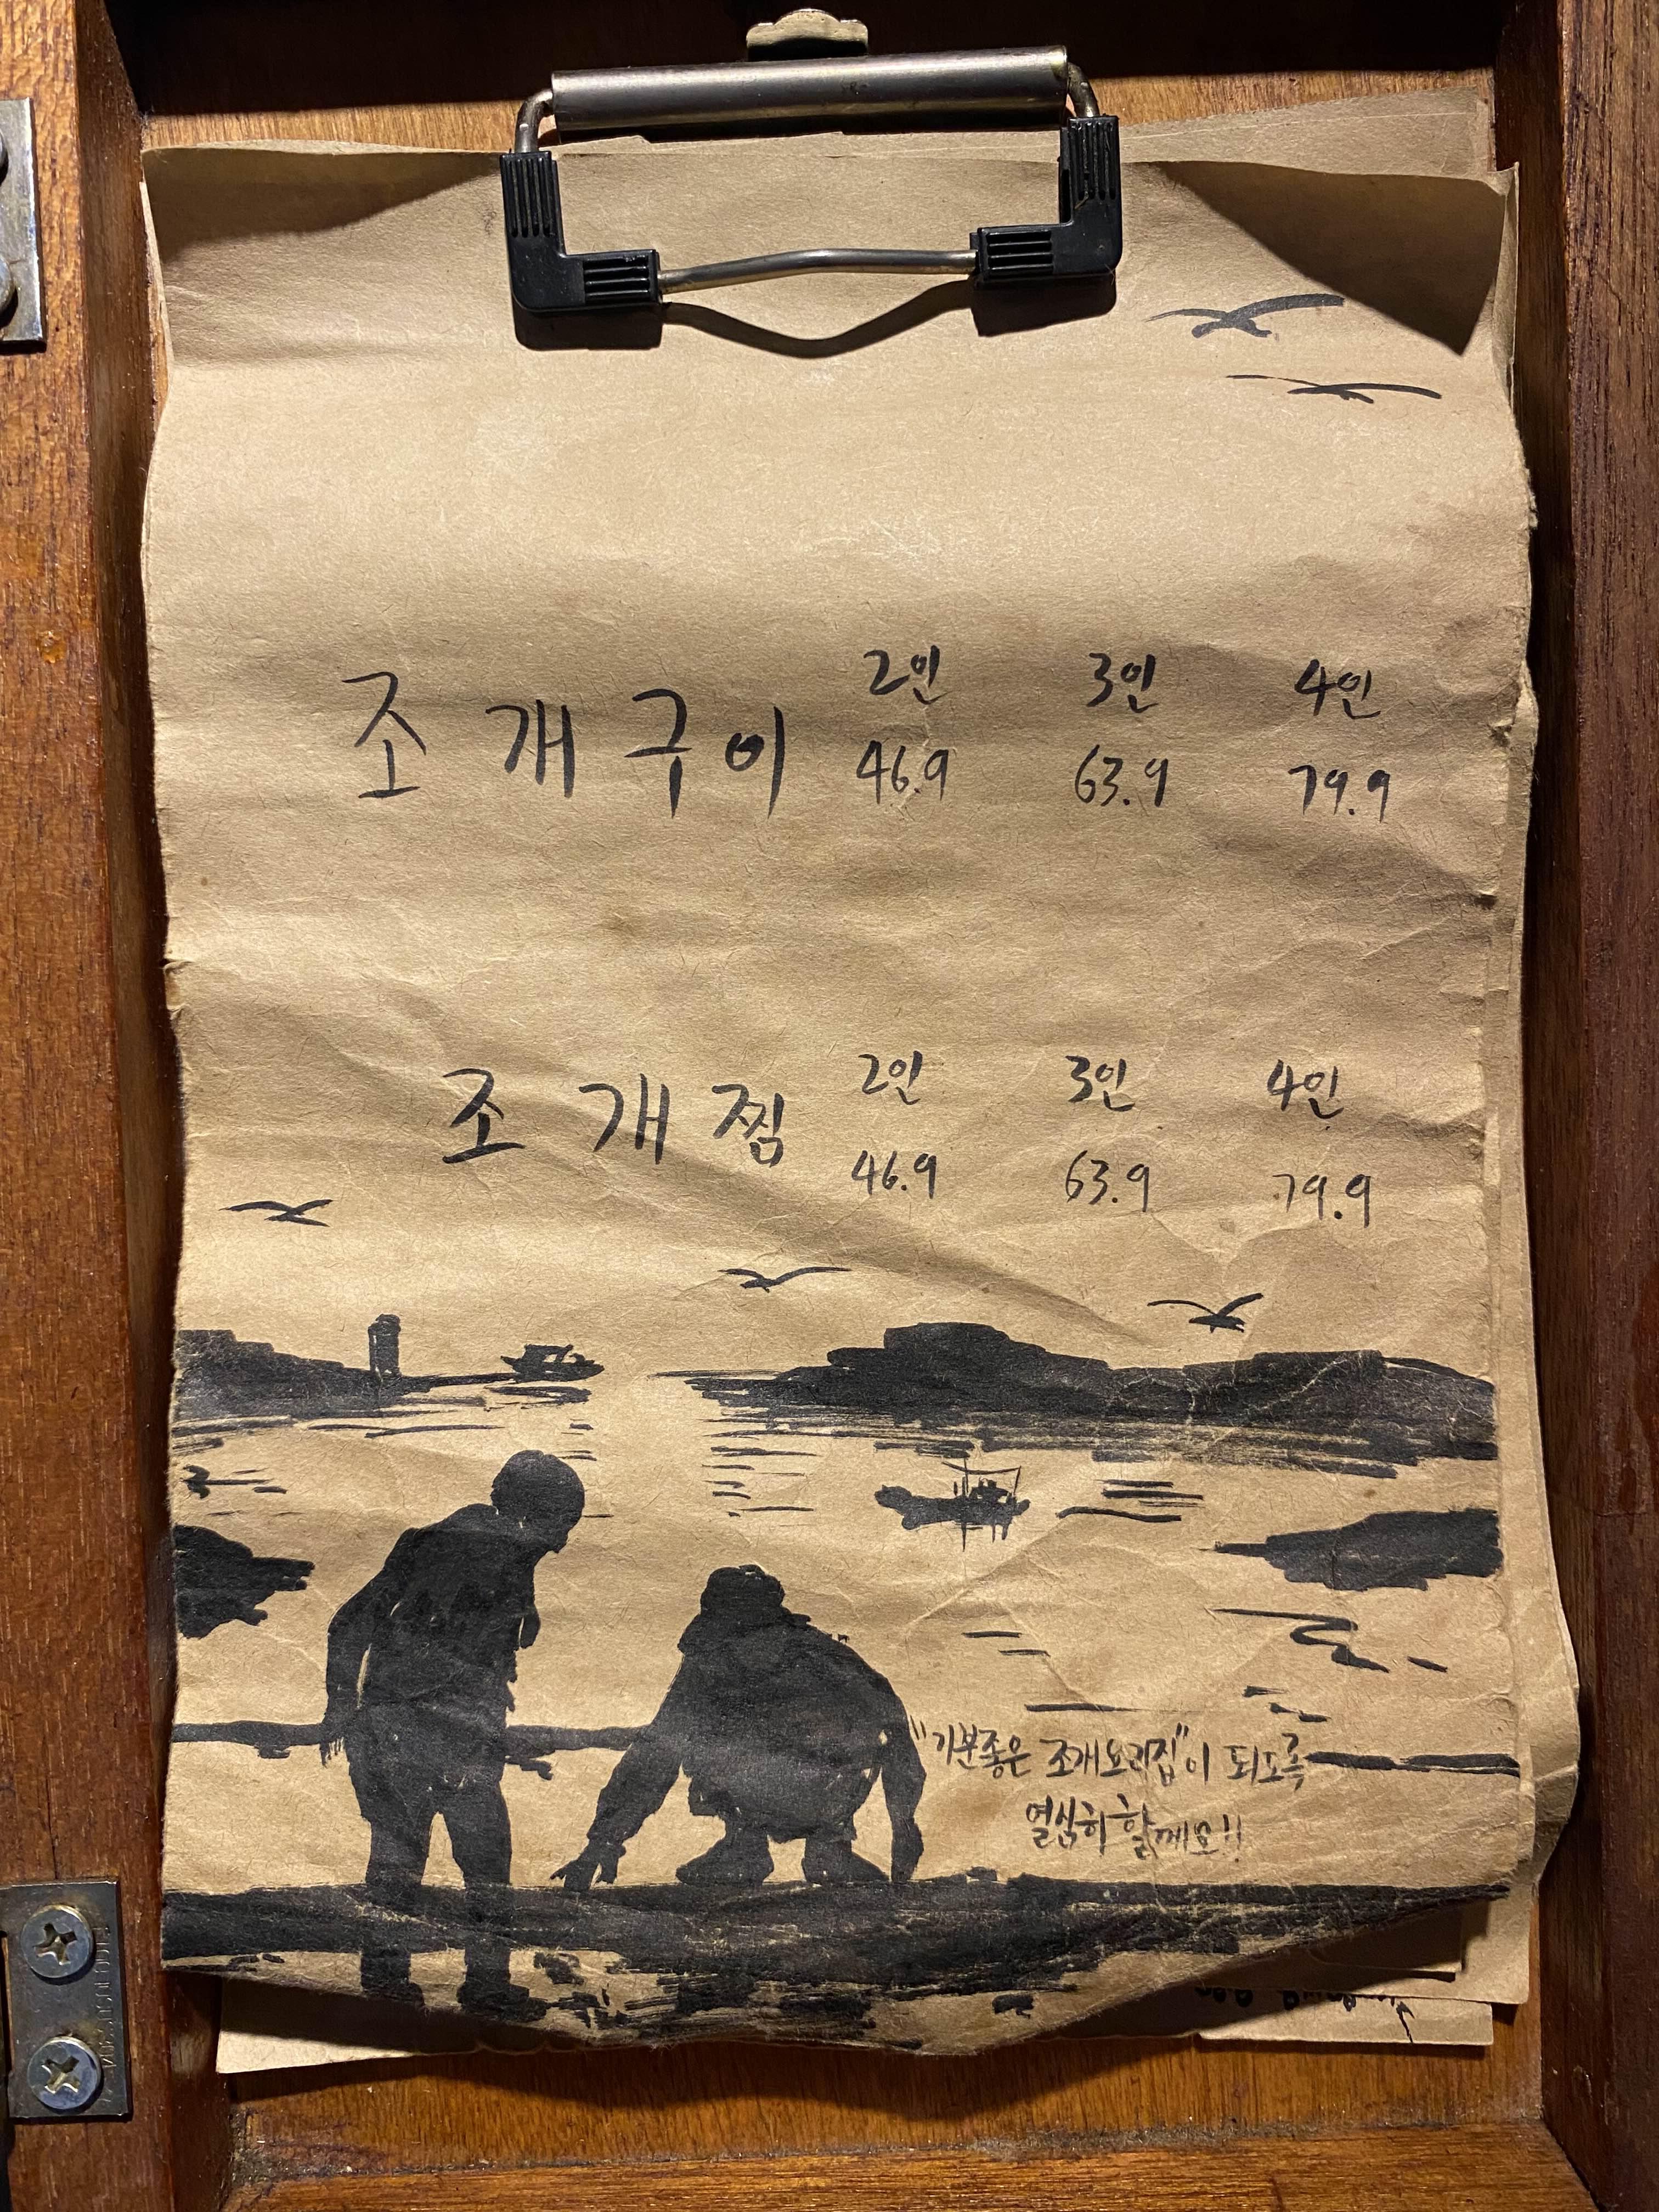 2인 3인 4인
조개구이 46.9 63.9 79.9
2인 3인 4인
조개찜 46.9 63.9 79.9
"기분좋은 조개요리집"이 되도록
열심히 할께요!!